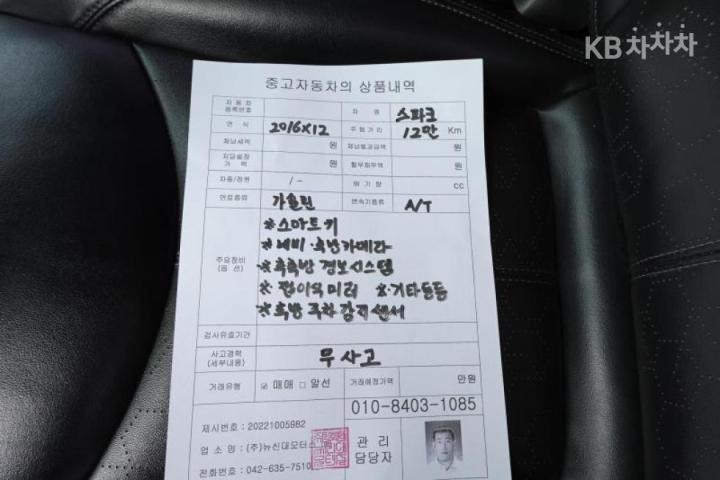 KB차차차
중고자동차의 상품내역
자동차 등록번호 차 명 스파크
연 식 2016X12 주행거리 12만 Km
체납세액 원 체납범과금액 원
저당설정 가 액 원 할부회무액 원
차종/정원 / - 배기량 cc
연료종류 가솔린 변속기종류 A/T
주요장비 (옵션)
※스마트키
※네비·후방카메라
※후측방 경보시스템
※전이식미러 ※기타등등
※후방 주차감지센서
검사유효기간
사고경력 (세부내용) 무사고
거래유형 ☑ 매매 □ 알선 거래예정가액 만원
010-8403-1085
제시번호 : 20221005982
업 소 명 : (주)뉴신대모터스
전화번호 : 042-635-7510
관 리 담당자